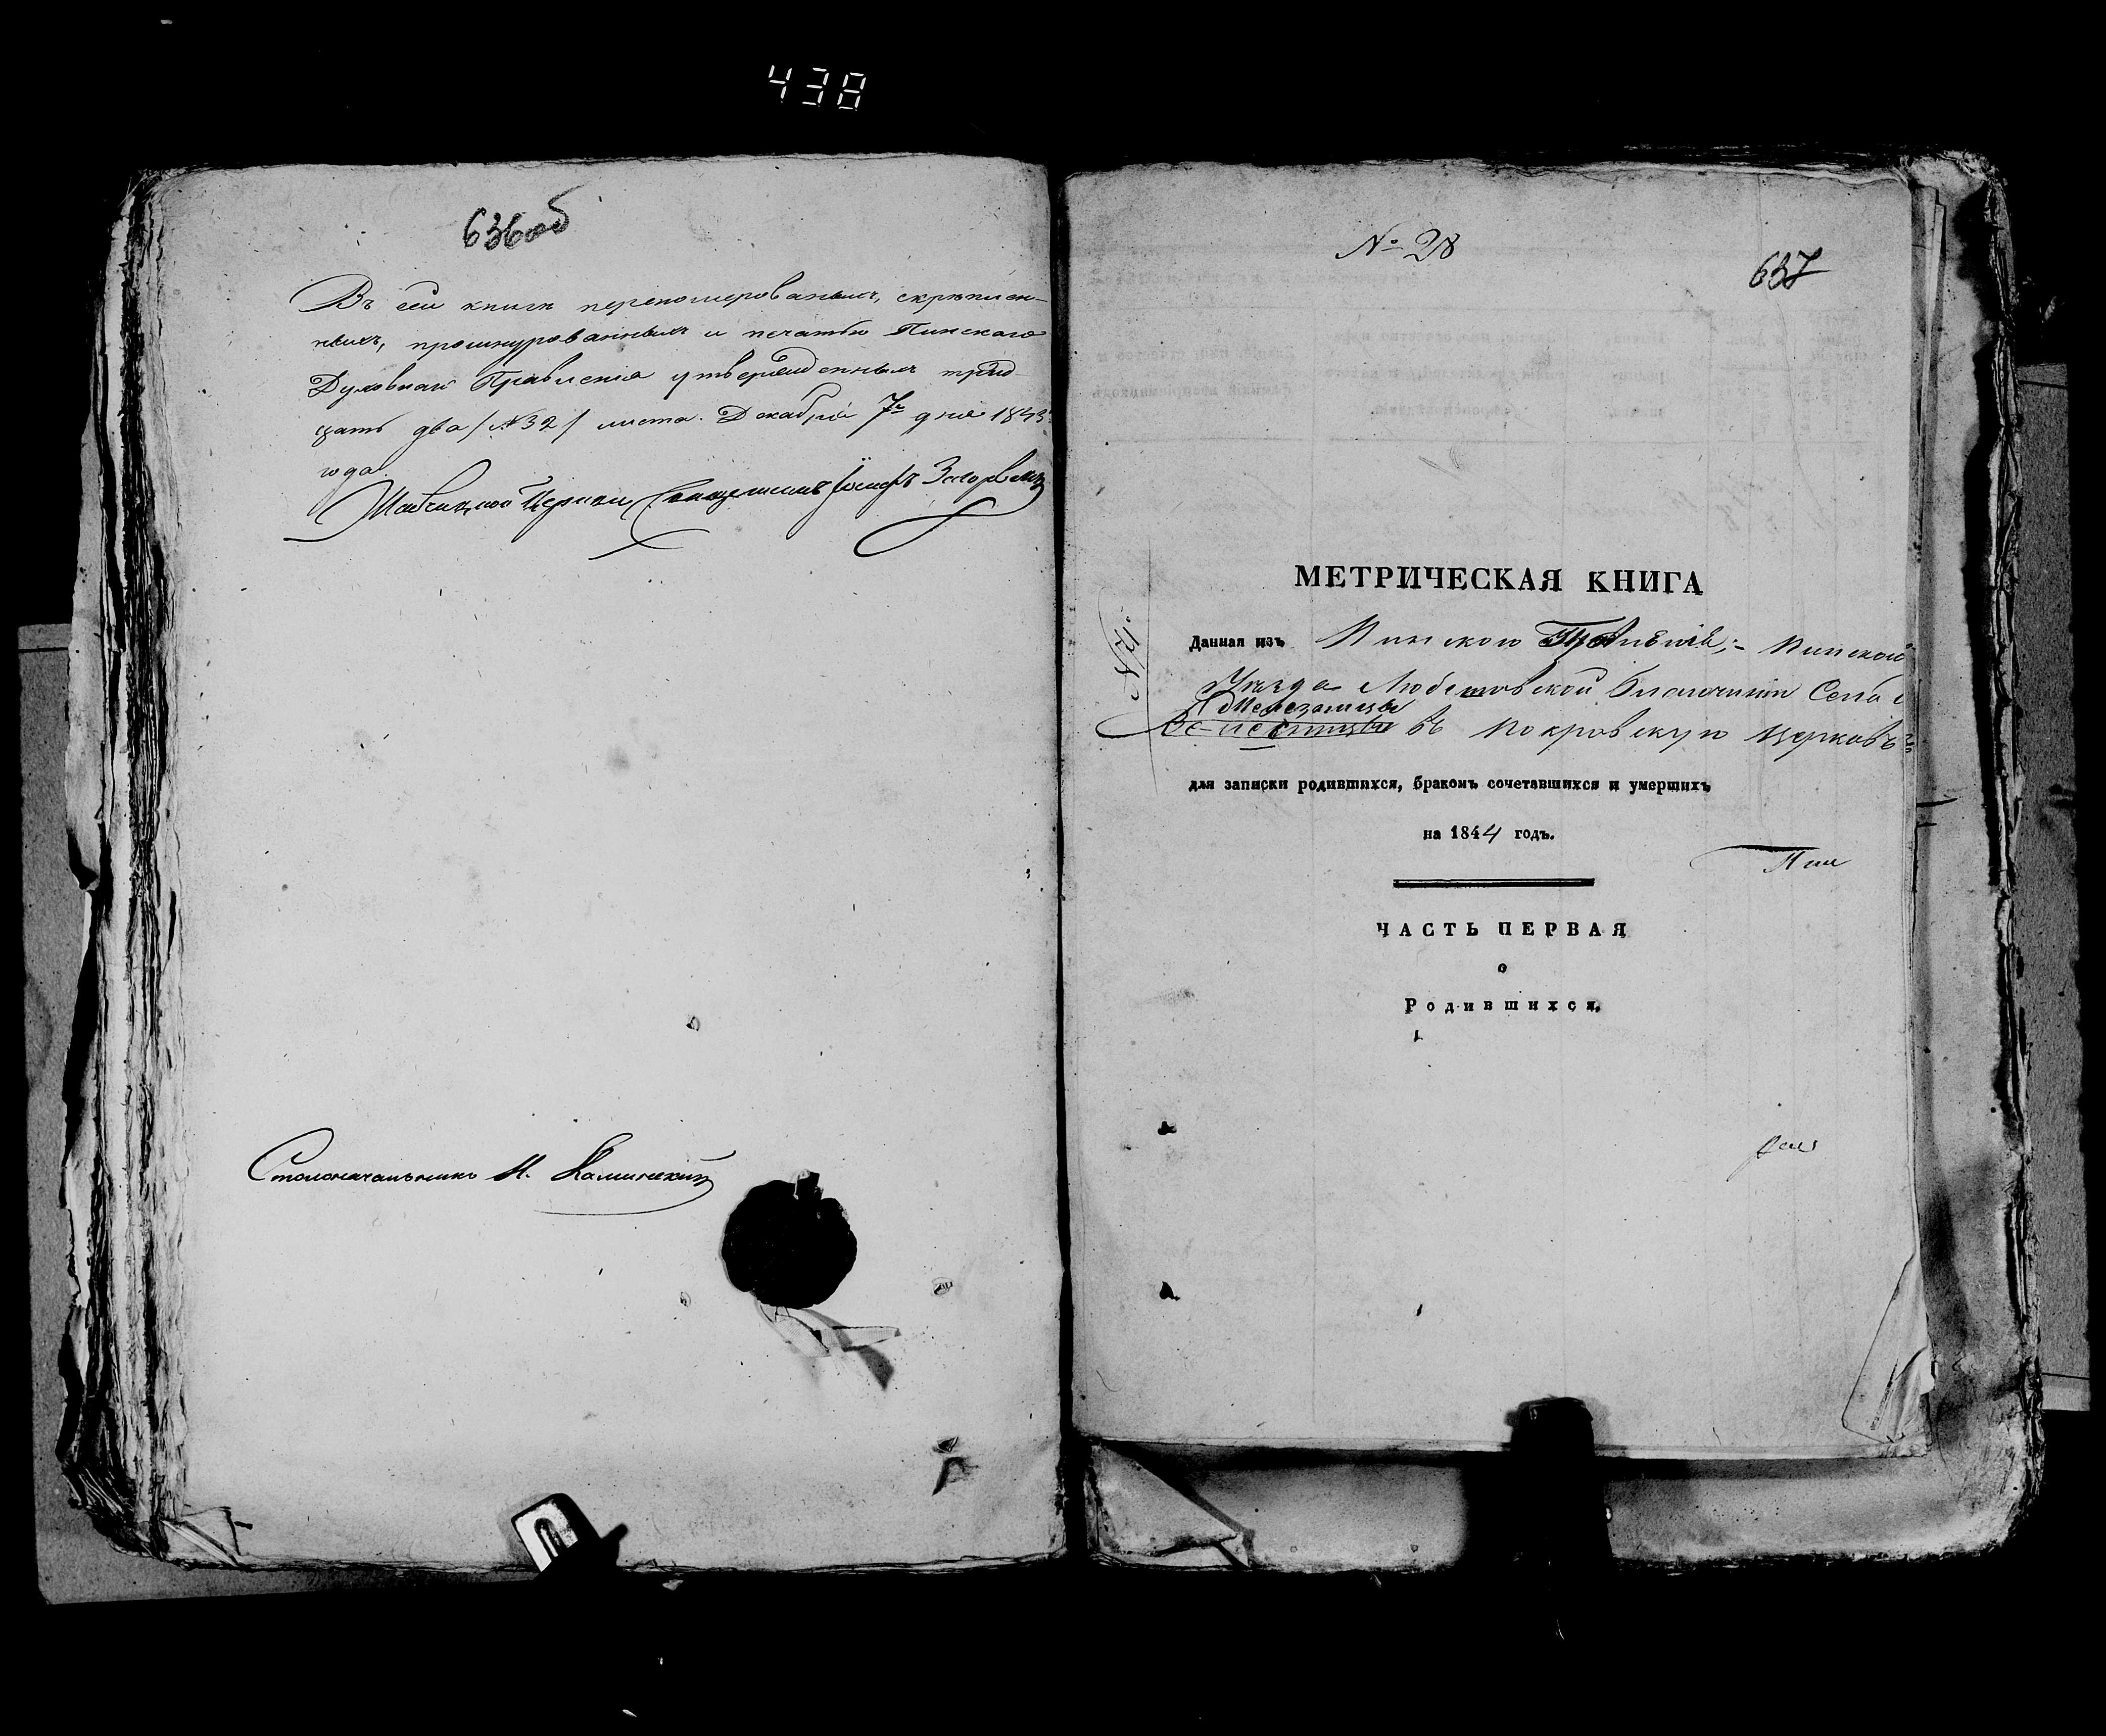 438
636 об
Въ сей книги переномерованыхъ, скрѣплен-
ныхъ, прошнурованныхъ и печатью Пинскаго
Духовнаго Правленія утвержденныхъ трид-
цать два /№ 32/ листа. Декабря 7го дня 1843
года
Церкви Священникъ Іосифъ
Столоначальникъ
№ 28
637
МЕТРИЧЕСКАЯ КНИГА
Данная изъ Пинского Правленія, Пинской
Уѣзда Любешовской Благочинія Села
въ Покровскую Церковь
для записки родившихся, бракомъ сочетавшихся и умершихъ
на 1844 годъ.
ЧАСТЬ ПЕРВАЯ
о
Родившихся.